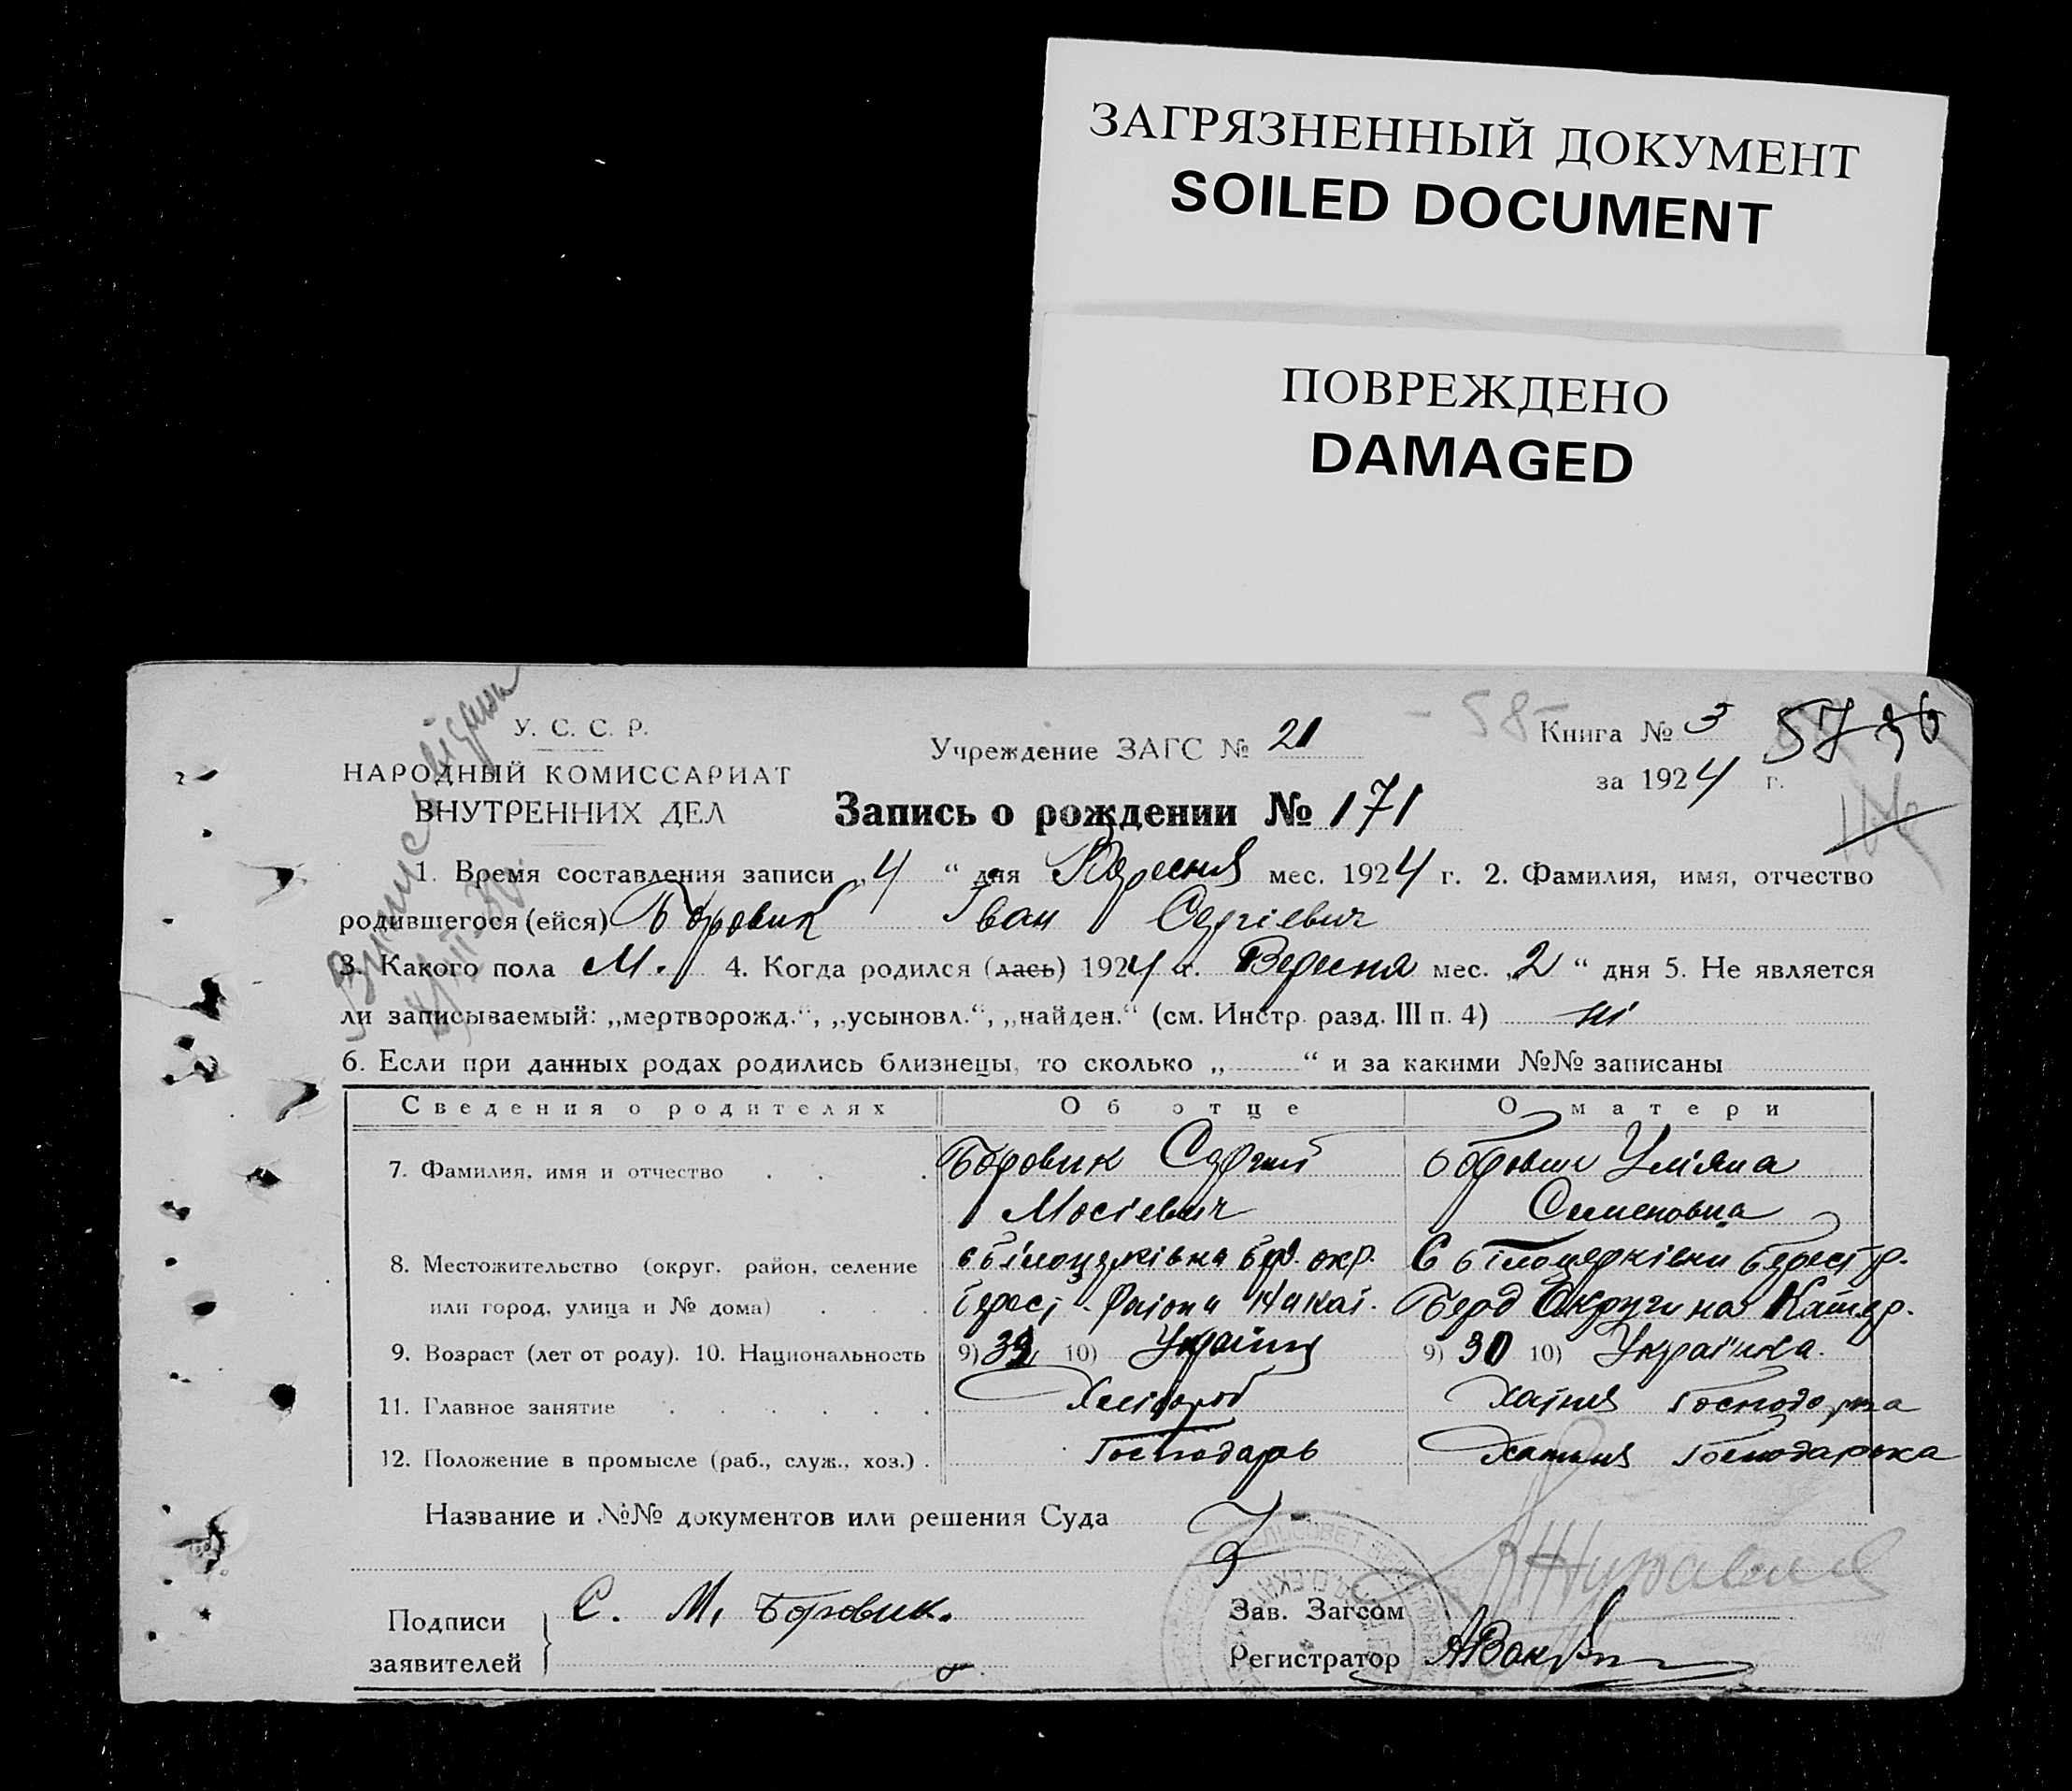 ЗАГРЯЗНЕННЫЙ ДОКУМЕНТ
SOILED DOCUMENT
ПОВРЕЖДЕНО
DAMAGED
- 58 -
У. С. С. Р.
Учреждение ЗАГС № 21
Книга № 3
НАРОДНЫЙ КОМИССАРИАТ
за 1924 г.
ВНУТРЕННИХ ДЕЛ
Запись о рождении № 171
1. Время составления записи „4“ дня Вересня мес. 1924 г. 2. Фамилия, имя, отчество
родившегося (ейся) Боровик Іван Сергіевич
3. Какого пола М. 4. Когда родился (лась) 1924 г. Вересня мес. „2“ дня 5. Не является
ли записываемый: „мертворожд.“, „усыновл.“, „найден.“ (см. Инстр. разд. III п. 4) ні
6. Если при данных родах родились близнецы, то сколько „ “ и за какими №№ записаны
Сведения о родителях Об отце О матери
7. Фамилия, имя и отчество Боровик Сергий Боровик Уліяна
Мосіевич Семеновна
8. Местожительство (округ, район, селение с Білоцерківка Бер. окр. С Білоцерківки Берест р.
или город, улица и № дома) Берест. Района Берд Округи на Катер.
9. Возраст (лет от роду). 10. Национальность 9) 10) Украінц 9) 30 10) Українка.
11. Главное занятие Хлібороб Хатня Господарка
12. Положение в промысле (раб., служ., хоз.) Господарь Хатня Господарька
Название и №№ документов или решения Суда
Подписи С. М. Боровик. Зав. Загсом
заявителей Регистратор